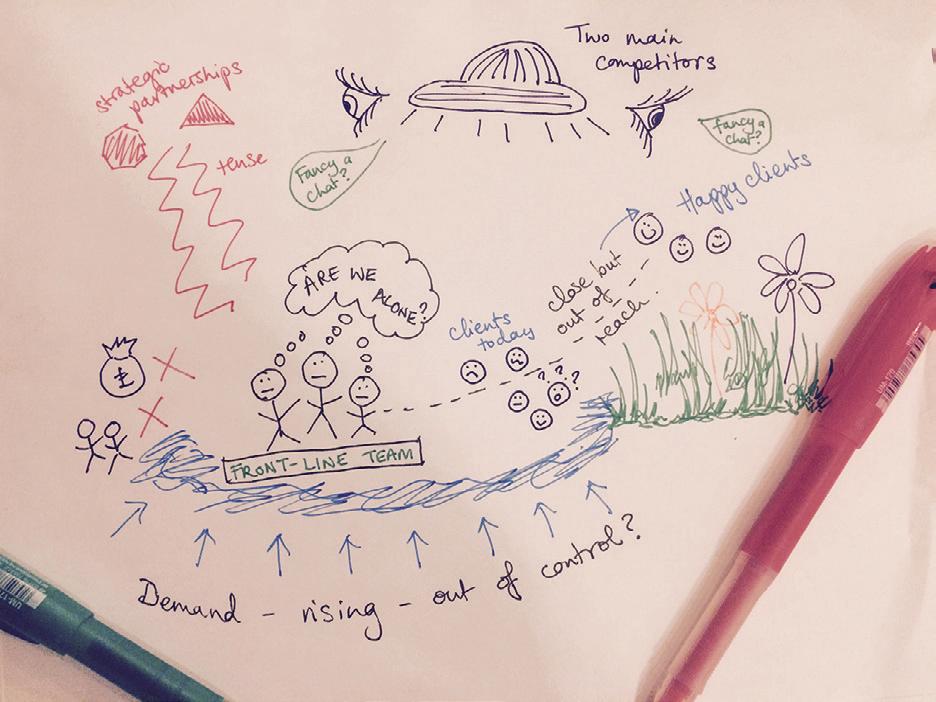 Two main
competitors
strategic
partnerships
tense
Fancy a
chat?
Fancy a
chat?
Happy clients
ARE WE
ALONE?
close but
out of
reach!
clients
today
? ? ?
£
FRONT-LINE TEAM
Demand - rising - out of control?